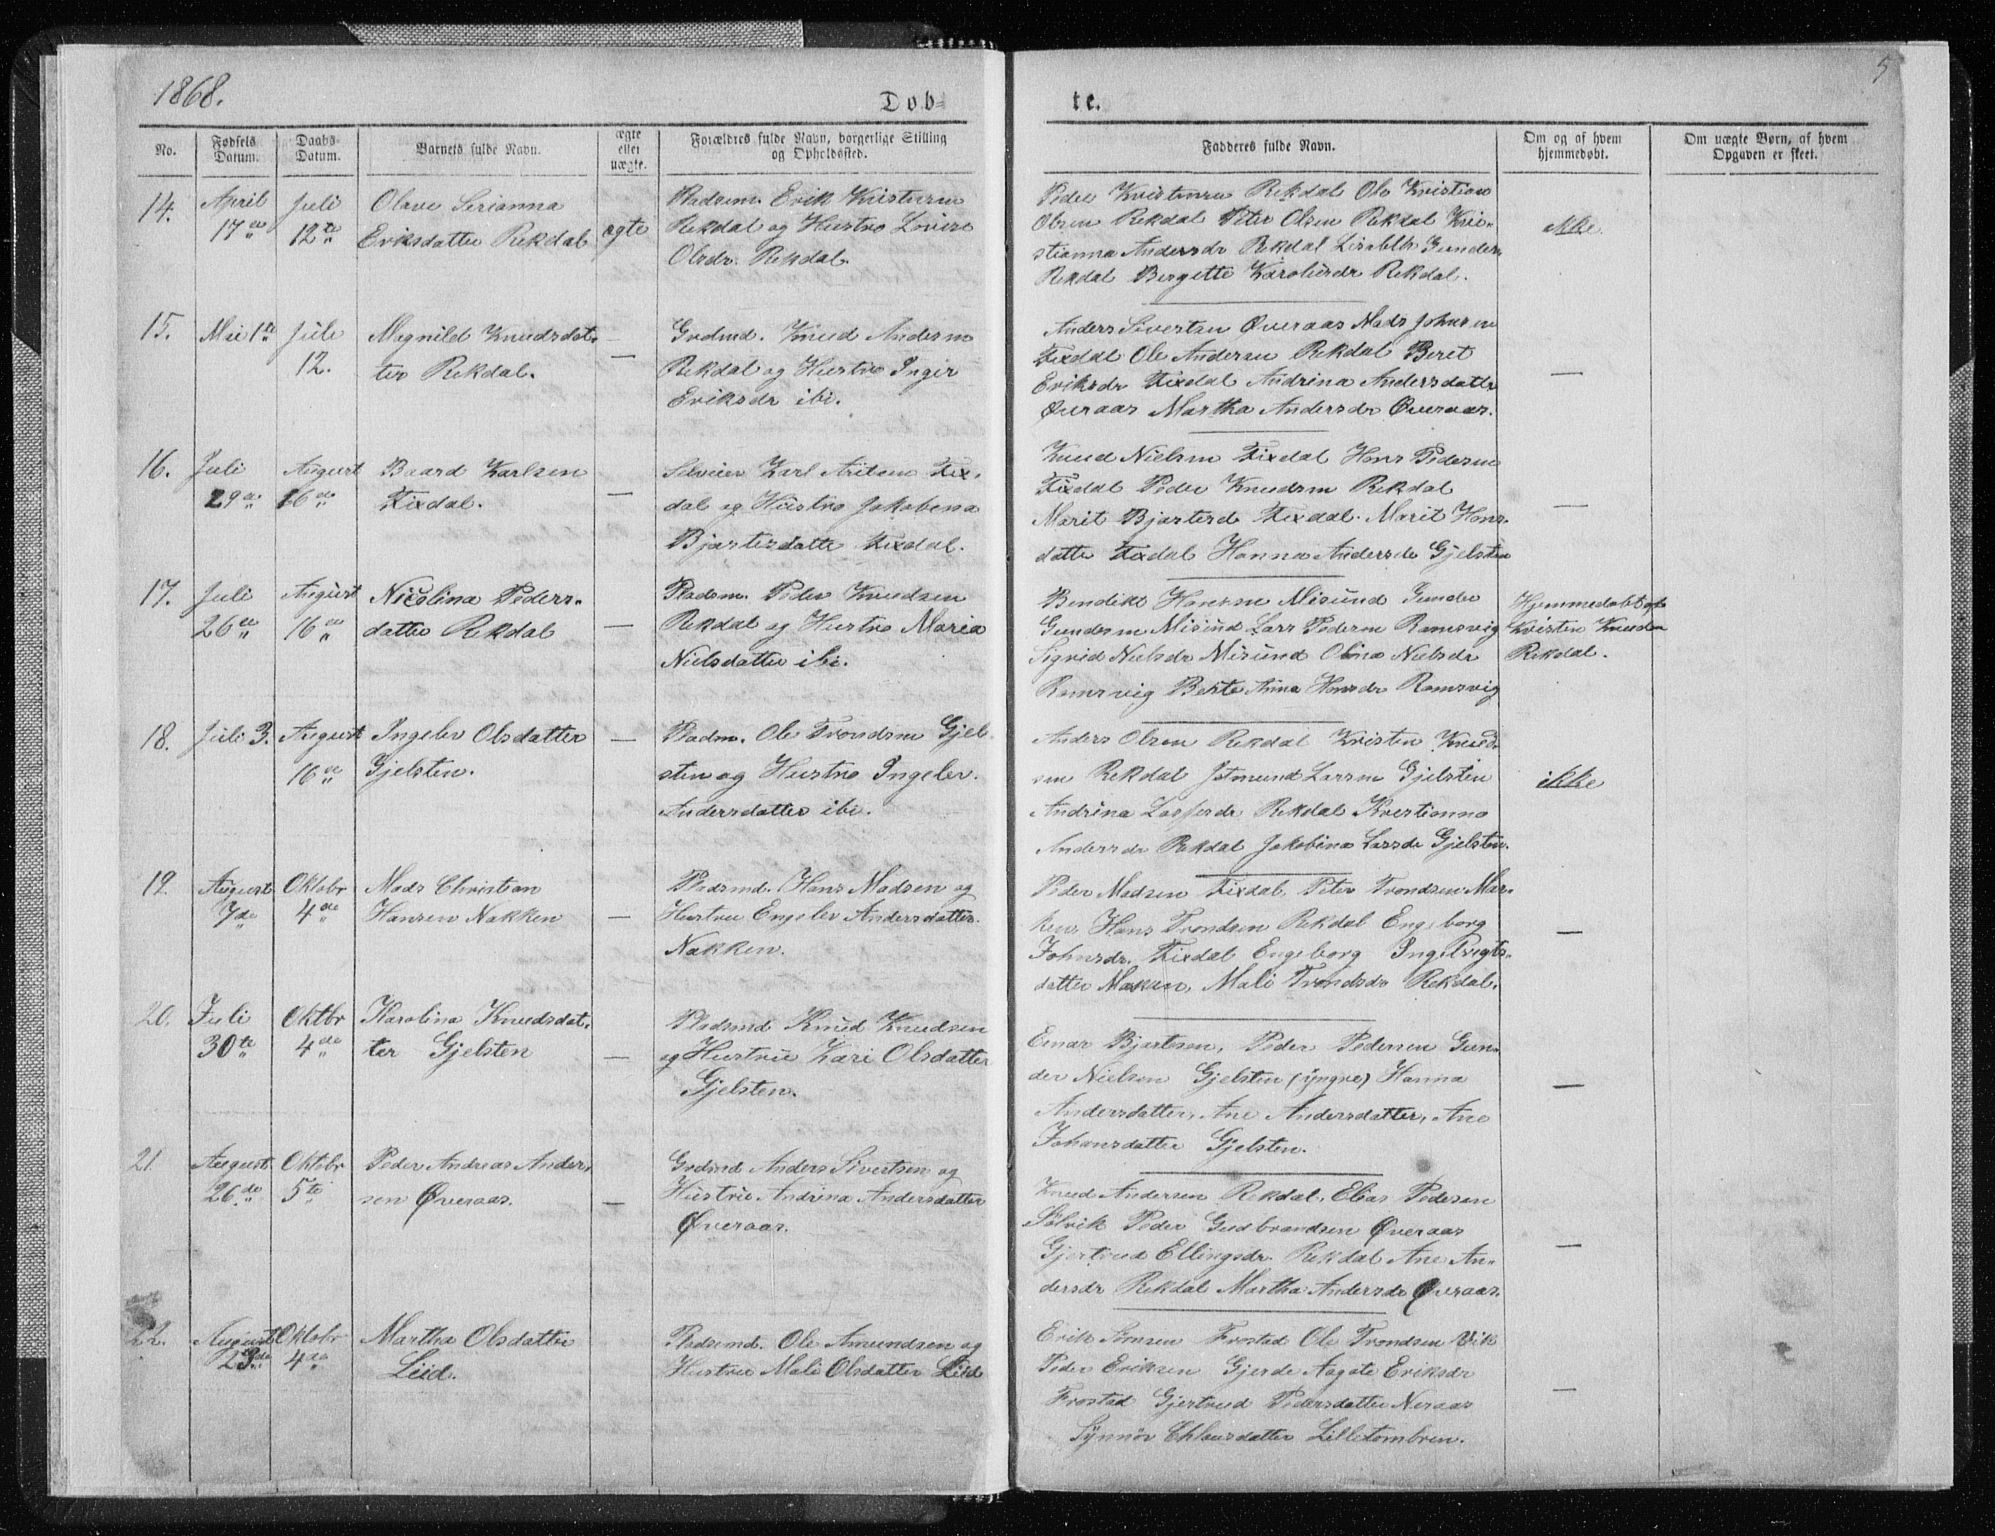 1868.
Døb-
te.
5
No.
Fødsels Datum.
Daabs-Datum.
Barnets fulde Navn.
ægte eller uægte.
Forældres fulde Navn, borgerlige Stilling og Opholdssted.
Fadderes fulde Navn.
Om og af hvem hjemmedøbt.
Om uægte Børn, af hvem Opgaven er skeet.
14.
April
17de
Juli
12te
Olave Serianna
Eriksdatter Rekdal
ægte
Pladsm. Erik Kristensen
Rekdal og Hustro Lovise
Olsdr. Rekdal.
Peder Kristensen Rekdal Ole Kristian
Olsen Rekdal Peter Olsen Rekdal Kri-
stianna Andersdr Rekdal Lisabeth Gunders.
Rekdal Bergette Karolusdr Rekdal.
ikke
15.
Mai 1ste
Juli
12.
Magnild Knudsdat-
ter Rekdal.
—
Grdmd. Knud Andersen
Rekdal og Hustro Inger
Eriksdr ibi.
Anders Sivertsen Øveraas Mads Johnsen
Fixdal Ole Andersen Rekdal Beret
Eriksdr Fixdal Andrina Andersdatter
Øveraas Martha Andersdr Øveraas.
—
16.
Juli
29de
August
16de
Baard Karlsen
Fixdal.
—
Selveier Karl Aritsen Fix-
dal og Hustro Jakobina
Bjartesdatte Fixdal.
Knud Nielsen Fixdal Hans Pedersen
Fixdal Peder Knudsen Rekdal
Marit Bjartesd Fixdal. Marit Hans-
datte Fixdal Hanna Andersdr Gjelsten
—
17.
Juli
26de
August
16de
Nicolina Peders-
datter Rekdal
—
Pladsm. Peder Knudsen
Rekdal og Hustro Maria
Nielsdatter ibi.
Bendikt Hansen Misund Gunder
Gundersen Misund Lars Pedersen Ramsvig
Sigrid Nielsdr Misund Olina Nielsdr
Ramsvig Berte Anna Hansdr Ramsvig
Hjemmedøbt af
Kristen Knudsen
Rekdal.
18.
Juli 3.
August
16de
Ingelev Olsdatter
Gjelsten.
—
Pladsm. Ole Trondsen Gjel-
sten og Hustro Ingelev
Andersdatter ibi.
Anders Olsen Rekdal Kristen Knud-
sen Rekdal Jetmund Larsen Gjelsten
Andrina Lassesdr Rekdal Kristianna
Andersdr Rekdal Jakobina Larsdr Gjelsten.
ikke
19.
August
7de
Oktobr
4de
Mads Christian
Hansen Nakken
—
Pladsmd. Hans Madsen og
Hustru Engelev Andersdatter
Nakken.
Peder Madsen Fixdal, Peter Trondsen Mar-
ken Hans Trondsen Rekdal Engeborg
Johnsdr. Fixdal Engeborg Ingebrigts-
datter Marken, Mali Trondsdr Rekdal.
—
20.
Juli
30te
Oktbr
4de
Karolina Knudsdat-
ter Gjelsten
—
Pladsmd Knud Knudsen
og Hustru Kari Olsdatter
Gjelsten.
Einar Bjartesen, Peder Pedersen Gun-
der Nielsen Gjelsten (yngre) Hanna
Andersdatter, Ane Andersdatter, Ane
Johansdatter Gjelsten.
—
21
August
26de
Oktobr
5te
Peder Andreas Ander-
sen Øveraas.
—
Grdmd Anders Sivertsen og
Hustru Andrina Andersdatter
Øveraas.
Knud Andersen Rekdal, Elias Pedersen
Sølvik Peder Gudbrandsen Øveraas
Gjertrud Ellingsdr. Rekdal Ane An-
dersdr Rekdal Martha Andersdr Øveraas.
—
22.
August
23de
Oktobr
4de
Martha Olsdatter
Liid.
Pladsmd. Ole Amundsen og
Hustru Mali Olsdatter Liid
Erik Simsen Frostad Ole Trondsen Vik
Peder Eriksen Gjerde Aagate Eriksdr
Frostad Gjertrud Pedersdatter Neraas
Synnøv Chlausdatter Lilletombren.
—